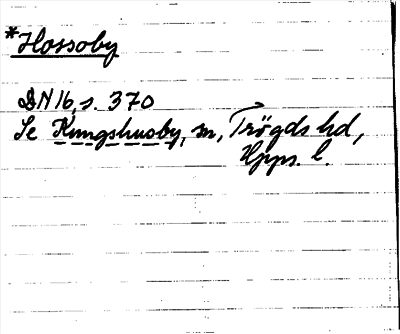 *Hossoby
DN 16, s. 370
Se Kungshusby, sn, Trögds hd,
Upps. l.